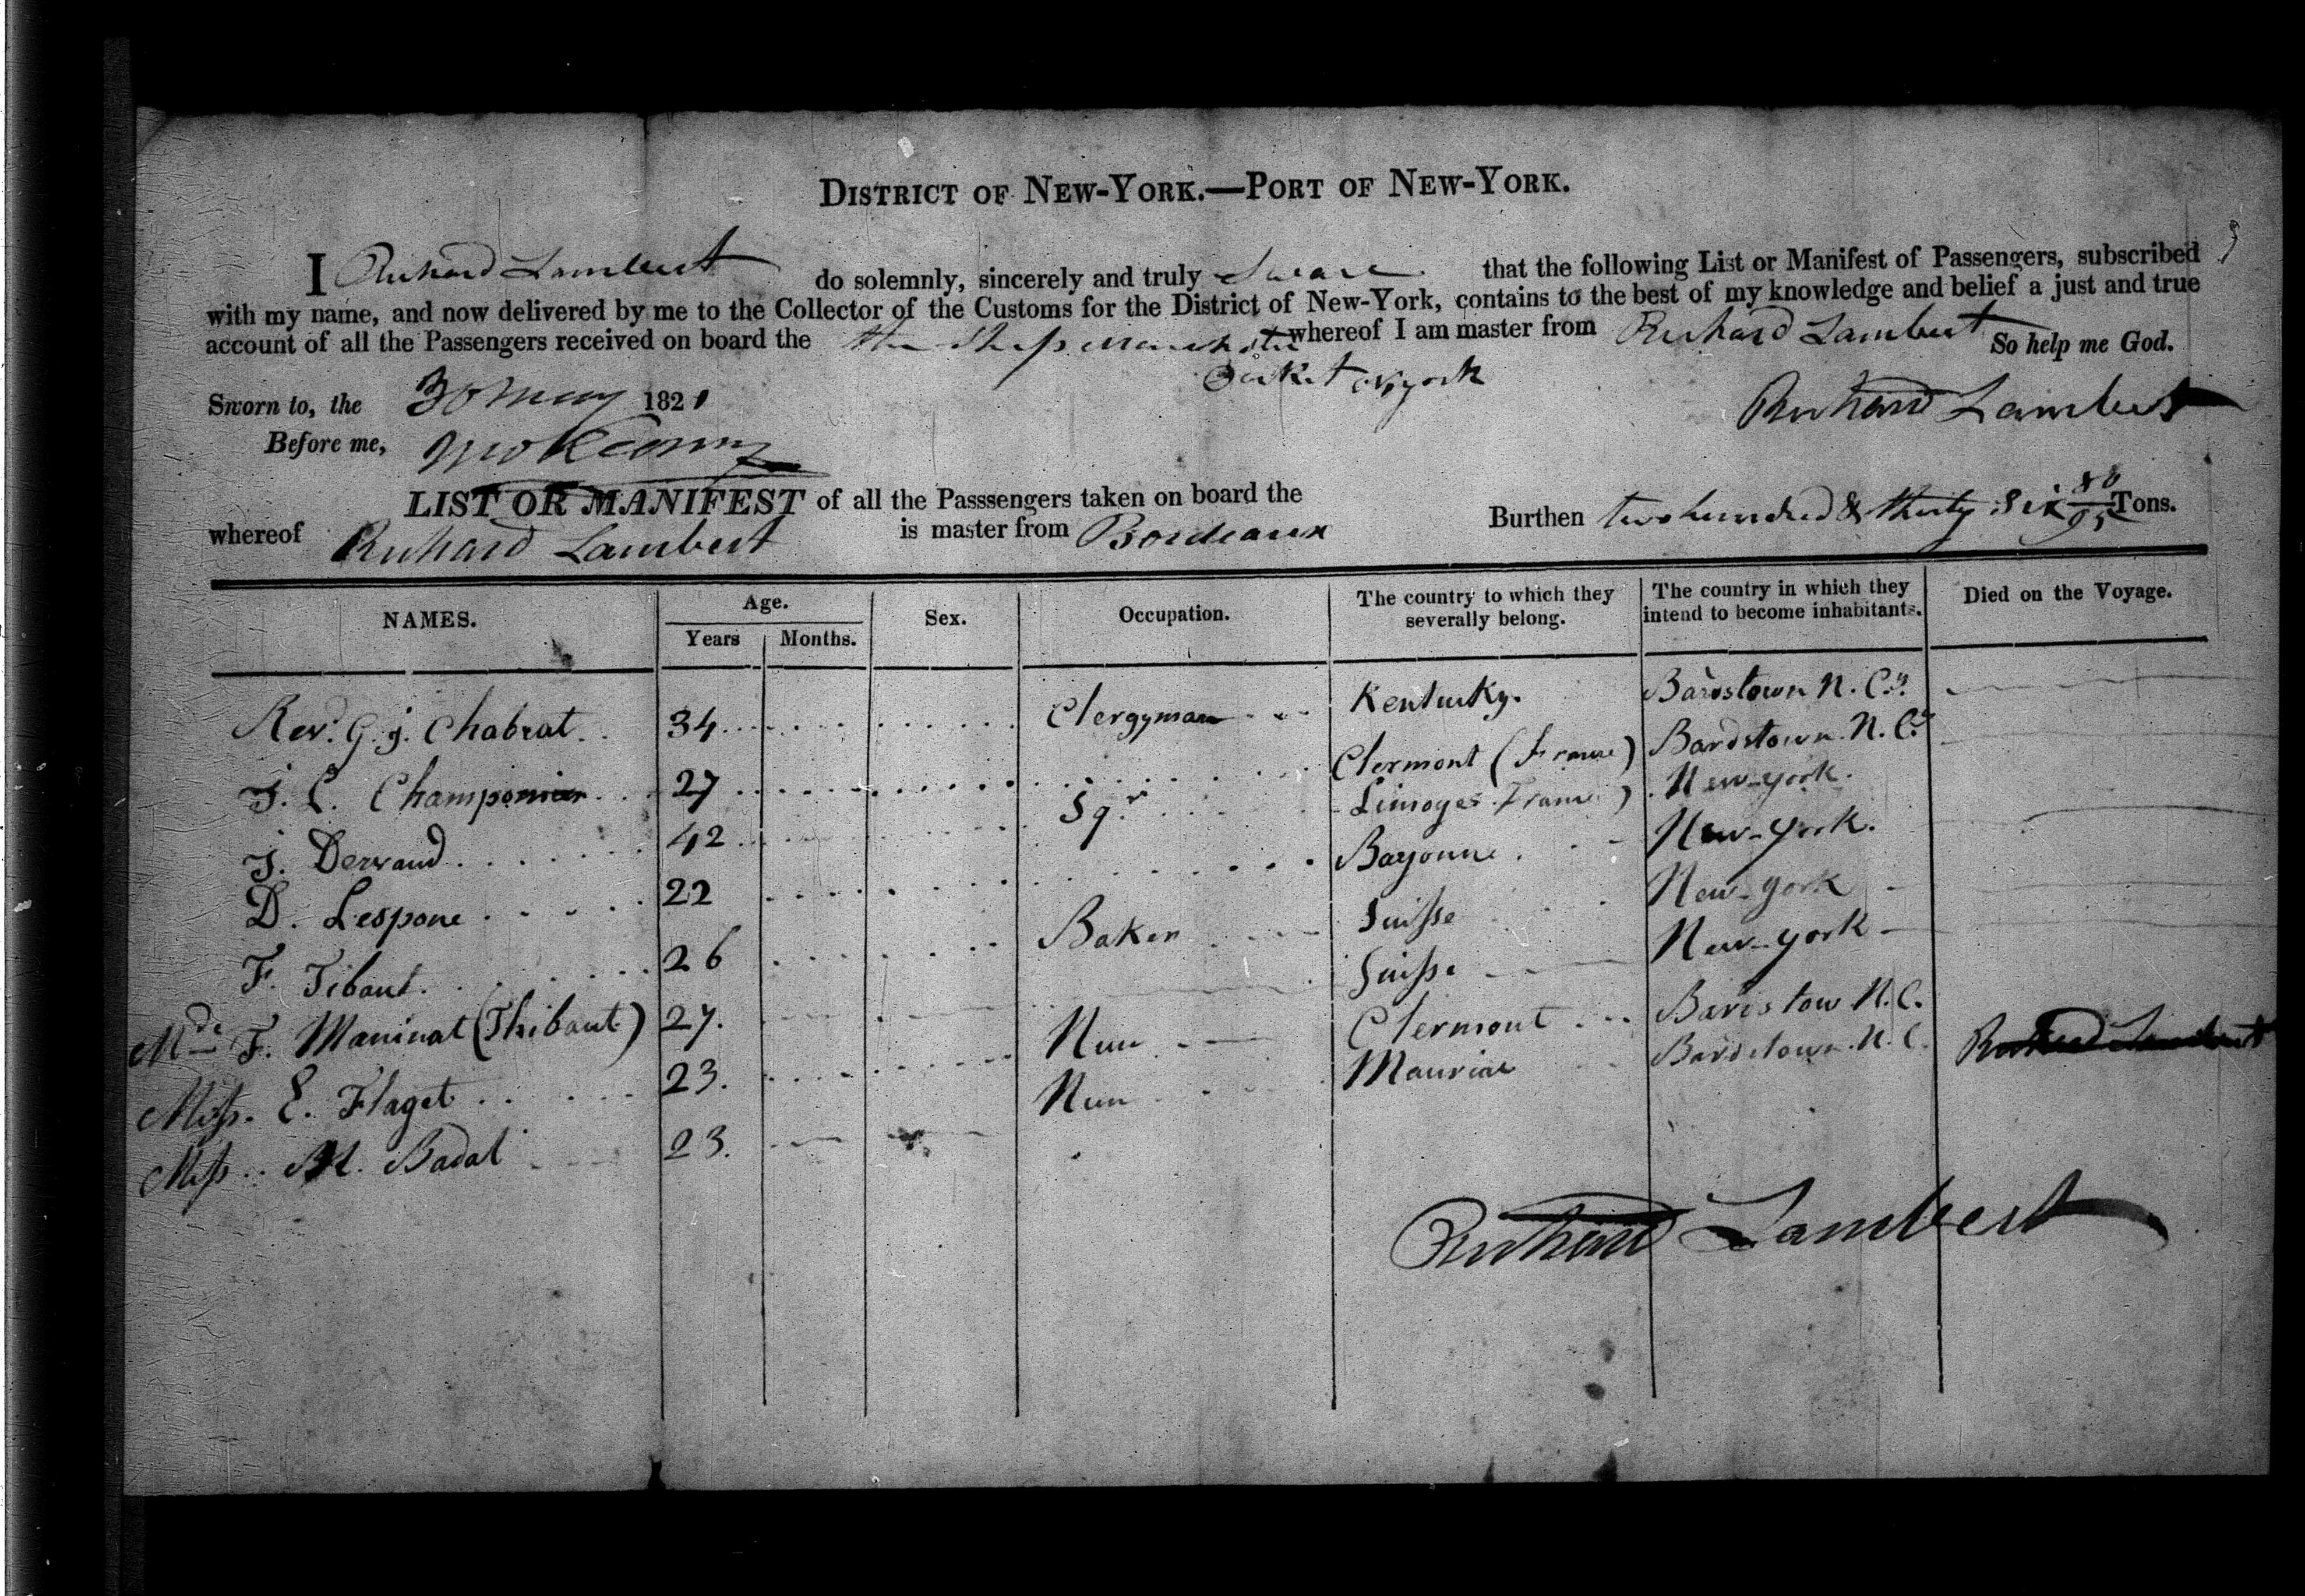 DISTRICT OF NEW-YORK.—PORT OF NEW-YORK.
I Richard Lambert do solemnly, sincerely and truly Swear that the following List or Manifest of Passengers, subscribed
with my name, and now delivered by me to the Collector of the Customs for the District of New-York, contains to the best of my knowledge and belief a just and true
account of all the Passengers received on board the the Ship whereof I am master from Richard Lambert So help me God.
york
Sworn to, the 30 May 1821
Richard Lambert
Before me,
LIST OR MANIFEST of all the Passsengers taken on board the
Burthen two hundred & thirty six 80/95 Tons.
whereof Richard Lambert is master from Bordeaux
NAMES. Age. Years Months. Sex. Occupation. The country to which they severally belong. The country in which they intend to become inhabitants. Died on the Voyage.
Rev.d G. j. Chabrat 34 Clergyman Kentucky. Bardstown N. C.y
j. C. Champomier 27 Clermont (France) Bardstown N. C.y
j. Dervaud 42 Sq.r Limoges France) New-york.
D. Lespone 22 Bayonne New-york.
F. Tibaut. 26 Baker Suisse New-york
Mde F. Maninat (Thibaut) 27. Suisse New-york
Miss. E. Flaget 23. Nun Clermont Bardstow N. C.
Miss M. Badal 23. Nun Mauriac Bardstown N. C.
Richard Lambert
Richard Lambert